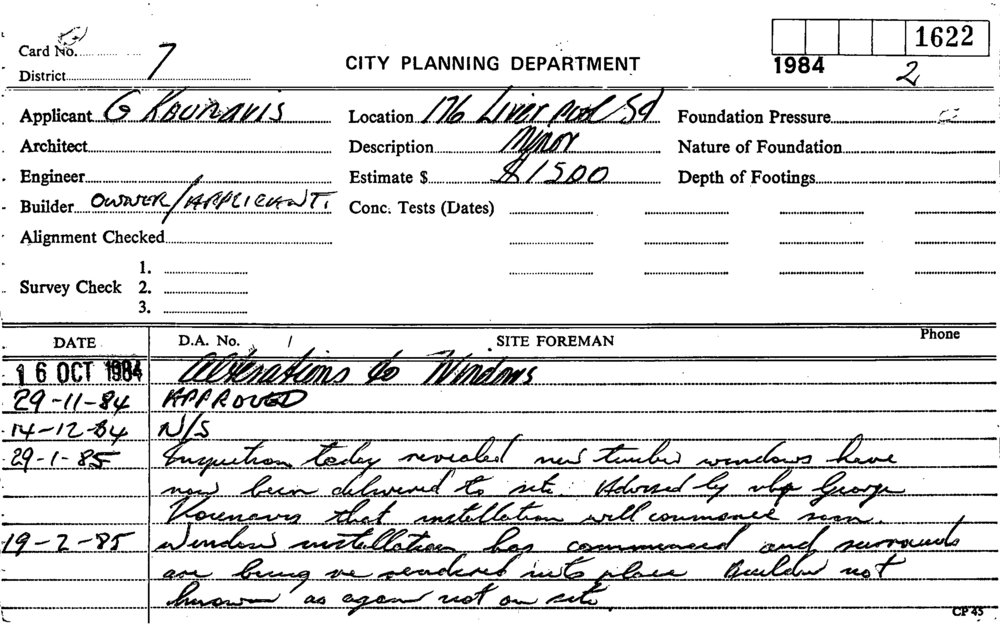 1622
Card No.
7
CITY PLANNING DEPARTMENT
1984
2
District
Applicant G Kounavis
Location 176 Liverpool Sq
Foundation Pressure
Architect
Description Minor
Nature of Foundation
Engineer
Estimate $ $1500
Depth of Footings
Builder OWNER/APPLICANT.
Conc. Tests (Dates)
Alignment Checked
1.
Survey Check 2.
3.
DATE D.A. No. / SITE FOREMAN Phone
16 OCT 1984 Alterations to Windows
29-11-84 APPROVED
14-12-84 N/S
29-1-85 Inspection today revealed new timber windows have
now been delivered to site. Advised by George
Kounavis that installation will commence soon.
19-2-85 Window installation has commenced and surrounds
are being re rendered into place Builder not
known as again not on site.
CP 45